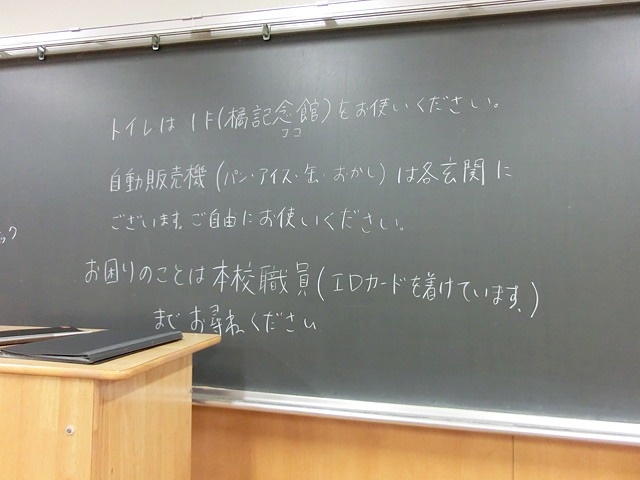 トイレは1F(橘記念館)をお使いください。
ココ
自動販売機(パン・アイス・缶・おかし)は各玄関に
ございます。ご自由にお使いください。
ック
お困りのことは本校職員(IDカードを着けています。)
までお尋ねください